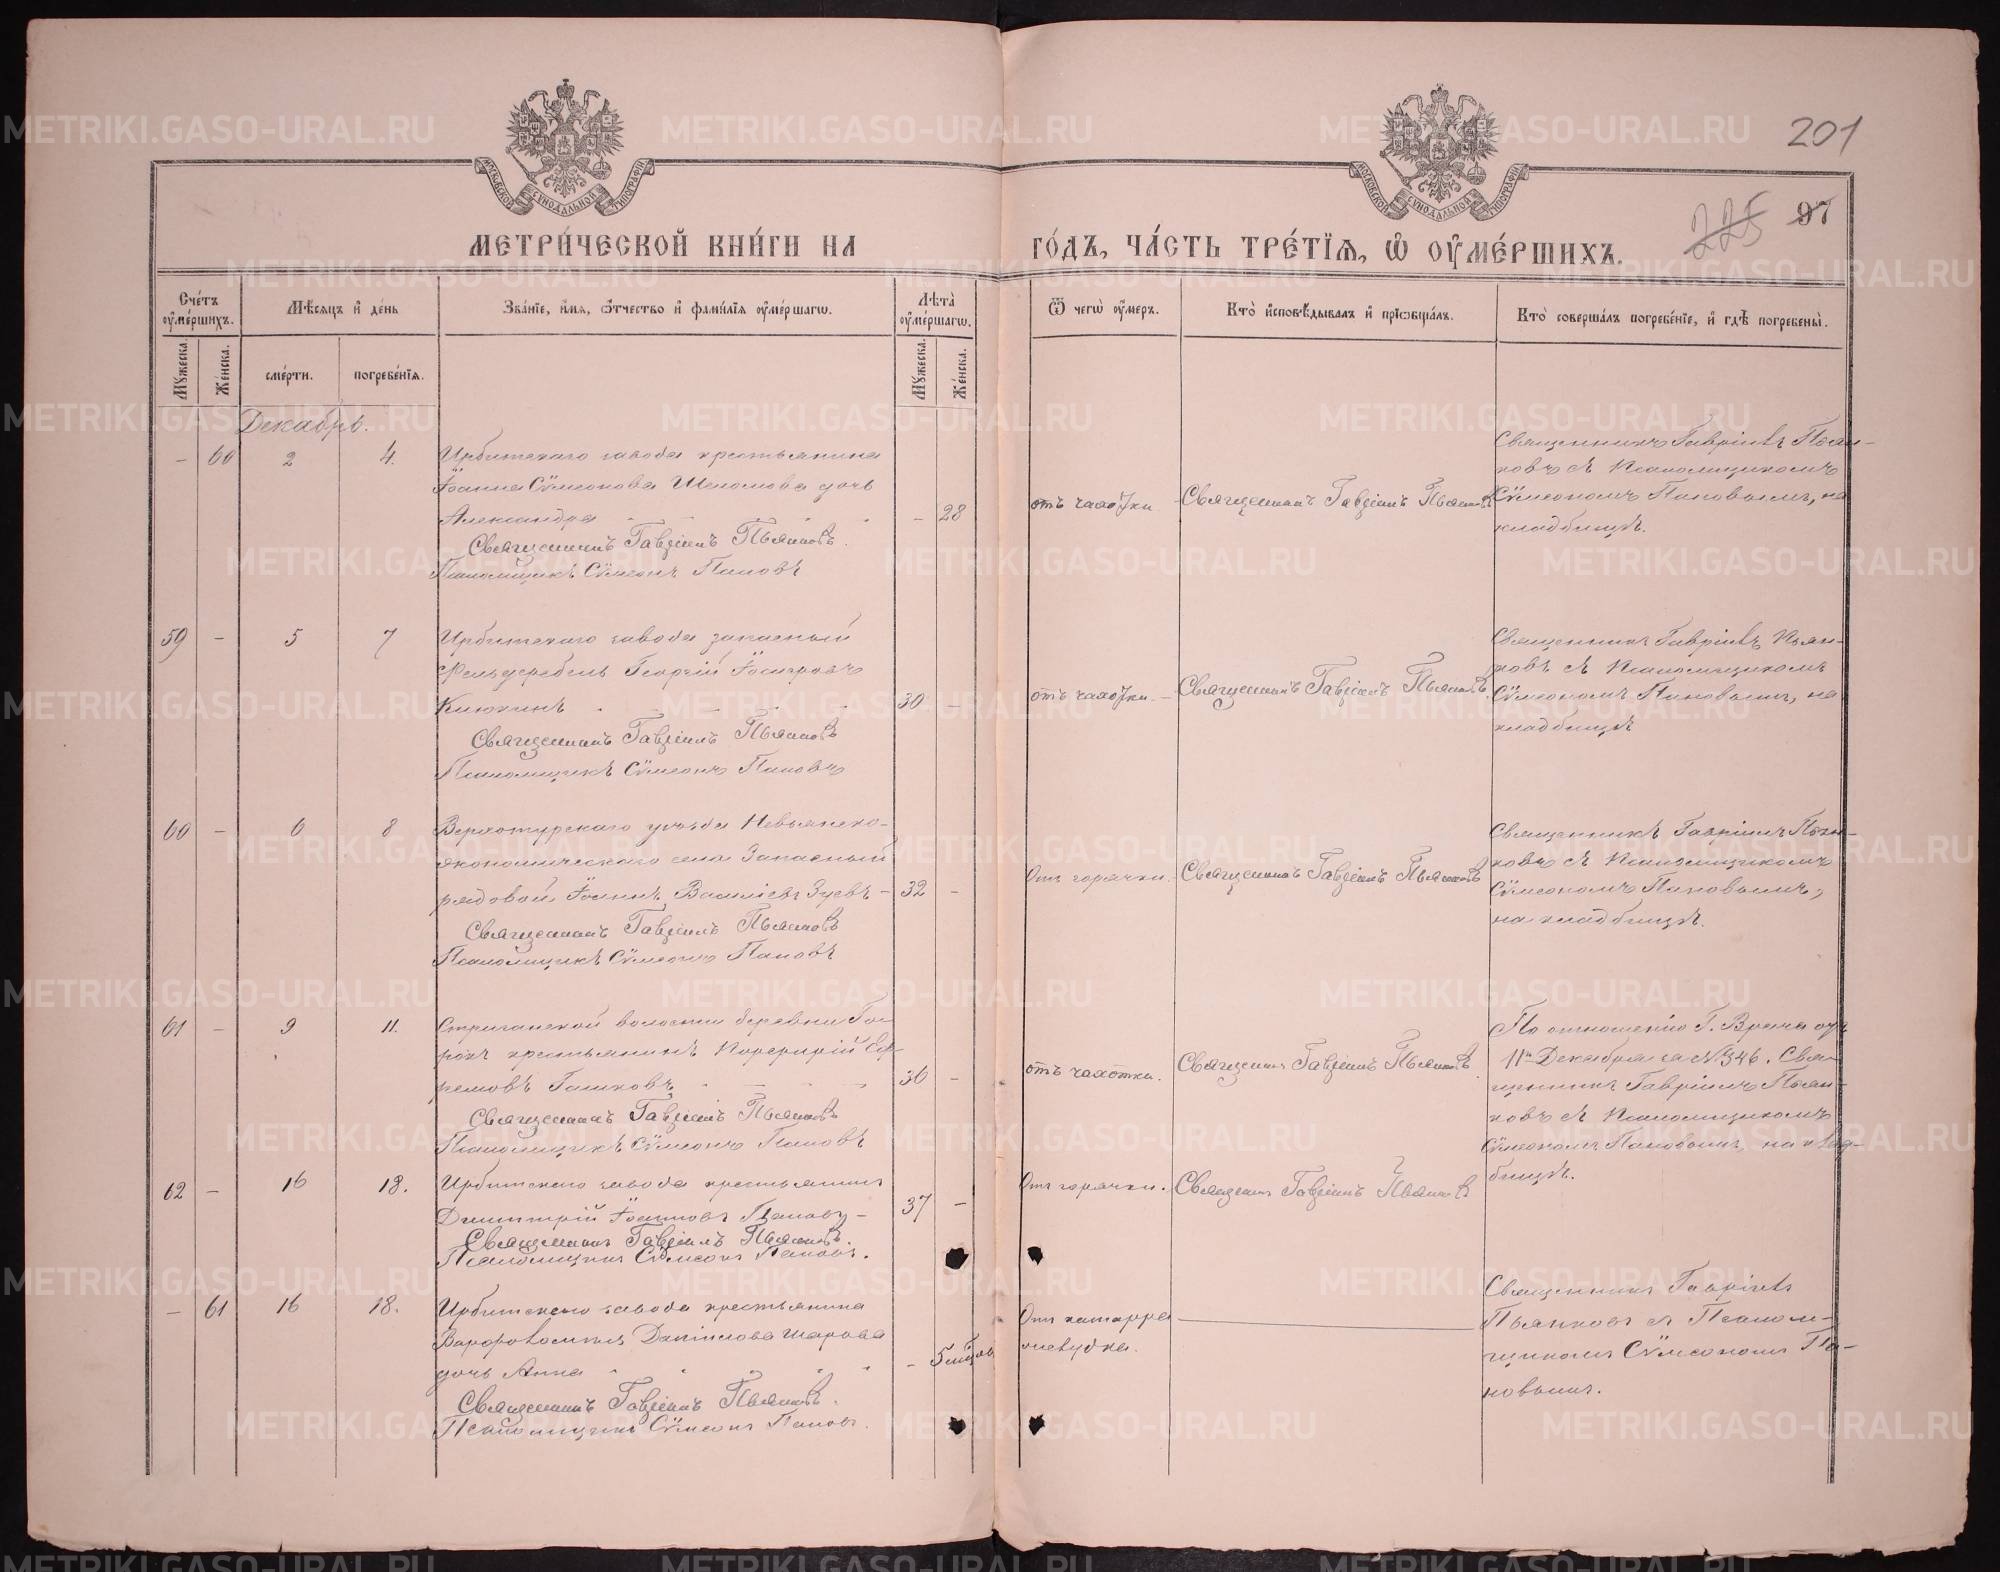 201
225 97
МЕТРИ́ЧЕСКОЙ КНИ́ГИ НА ГО́ДЪ, ЧА́СТЬ ТРЕ́ТІѦ, Ѽ ОУ҆МЕ́РШИХЪ.
МОСКОВСКОЙ СѴНОДАЛЬНОЙ ТИПОГРАФІИ
МОСКОВСКОЙ СѴНОДАЛЬНОЙ ТИПОГРАФІИ
Сче́тъ оу҆ме́ршихъ.
Мѣ́сѧцъ и҆ де́нь
Зва́нїе, и҆́мѧ, ѻ҆́тчество и҆ фами́лїѧ оу҆ме́ршагѡ.
Лѣ́та оу҆ме́ршагѡ.
Ѿ чегѡ̀ оу҆́меръ.
Кто̀ и҆сповѣ́дывалъ и҆ прїѡбща́лъ.
Кто̀ соверша́лъ погребе́нїе, и҆ гдѣ̀ погребены̀.
Мꙋ́жеска. Же́нска. сме́рти. погребе́нїѧ. Мꙋ́жеска. Же́нска.
Декабрь.
– 60 2 4.
Ирбитскаго завода крестьянина
Іоанна Сѵмеонова Шеломова дочь
Александра – 28
Священникъ Гавріилъ Пьянковъ.
Псаломщикъ Сѵмеонъ Поповъ
отъ чахотки
Священникъ Гавріилъ Пьянковъ
Священникъ Гавріилъ Пьян-
ковъ съ Псаломщикомъ
Сѵмеономъ Поповымъ, на
кладбищѣ.
59 – 5 7
Ирбитскаго завода запасный
Фельдфебель Георгій
30 –
Священникъ Гавріилъ Пьянковъ
Псаломщикъ Сѵмеонъ Поповъ
отъ чахотки –
Священникъ Гавріилъ Пьянковъ.
Священникъ Гавріилъ Пьян-
ковъ съ Псаломщикомъ
Сѵмеономъ Поповымъ, на
кладбищѣ
60 – 6 8
Верхотурскаго уѣзда Невьянско-
экономическаго села Запасный
рядовой Іоаннъ Василіевъ Зуевъ – 32 –
Священникъ Гавріилъ Пьянковъ
Псаломщикъ Сѵмеонъ Поповъ
Отъ горячки.
Священникъ Гавріилъ Пьянковъ
Священникъ Гавріилъ Пьян-
ковъ съ Псаломщикомъ
Сѵмеономъ Поповымъ,
на кладбищѣ.
61 – 9 11.
Стриганской волости деревни
крестьянинъ Порфирій Еф-
ремовъ 36 –
Священникъ Гавріилъ Пьянковъ
Псаломщикъ Сѵмеонъ Поповъ
отъ чахотки.
Священникъ Гавріилъ Пьянковъ.
По отношенію Г. Врача отъ
11го Декабря за №346. Свя-
щенникъ Гавріилъ Пьян-
ковъ съ Псаломщикомъ
Сѵмеономъ Поповымъ, на клад-
бищѣ.
62 – 16 18.
Ирбитскаго завода крестьянинъ
Димитрій 37 –
Священникъ Гавріилъ Пьянковъ.
Псаломщикъ Сѵмеонъ Поповъ.
Отъ горячки.
Священникъ Гавріилъ Пьянковъ
– 61 16 18.
Ирбитскаго завода крестьянина
Варфоломея Даніилова Шарова
дочь Анна – 5 мѣсяц
Священникъ Гавріилъ Пьянковъ.
Псаломщикъ Сѵмеонъ Поповъ.
Отъ катарра
желудка.
Священникъ Гавріилъ
Пьянковъ съ Псалом-
щикомъ Сѵмеономъ По-
повымъ.
METRIKI.GASO-URAL.RU